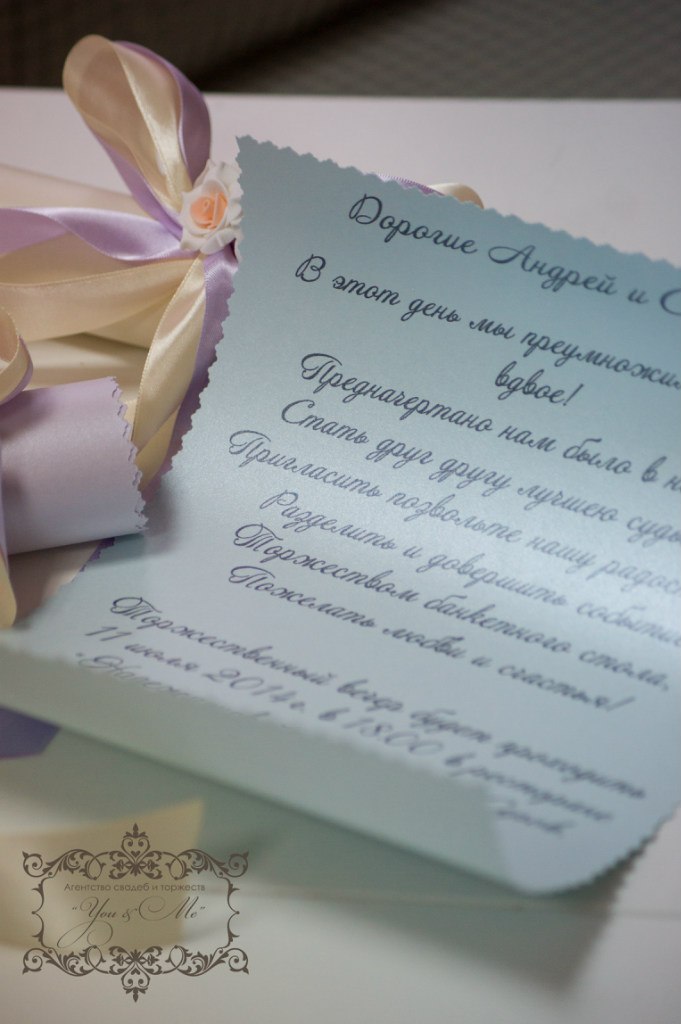 Дорогие Андрей и С
В этот день мы преумножил
вдвое!
Предначертано нам было в н
Стать друг другу лучшею судь
Пригласить позвольте нашу радос
Разделить и довершить событи
Торжеством банкетного стола,
Пожелать любви и счастья!
Торжественный вечер будет проходить
11 июля 2014 г. в 18.00 в ресторане
Агентство свадеб и торжеств
"You & Me"